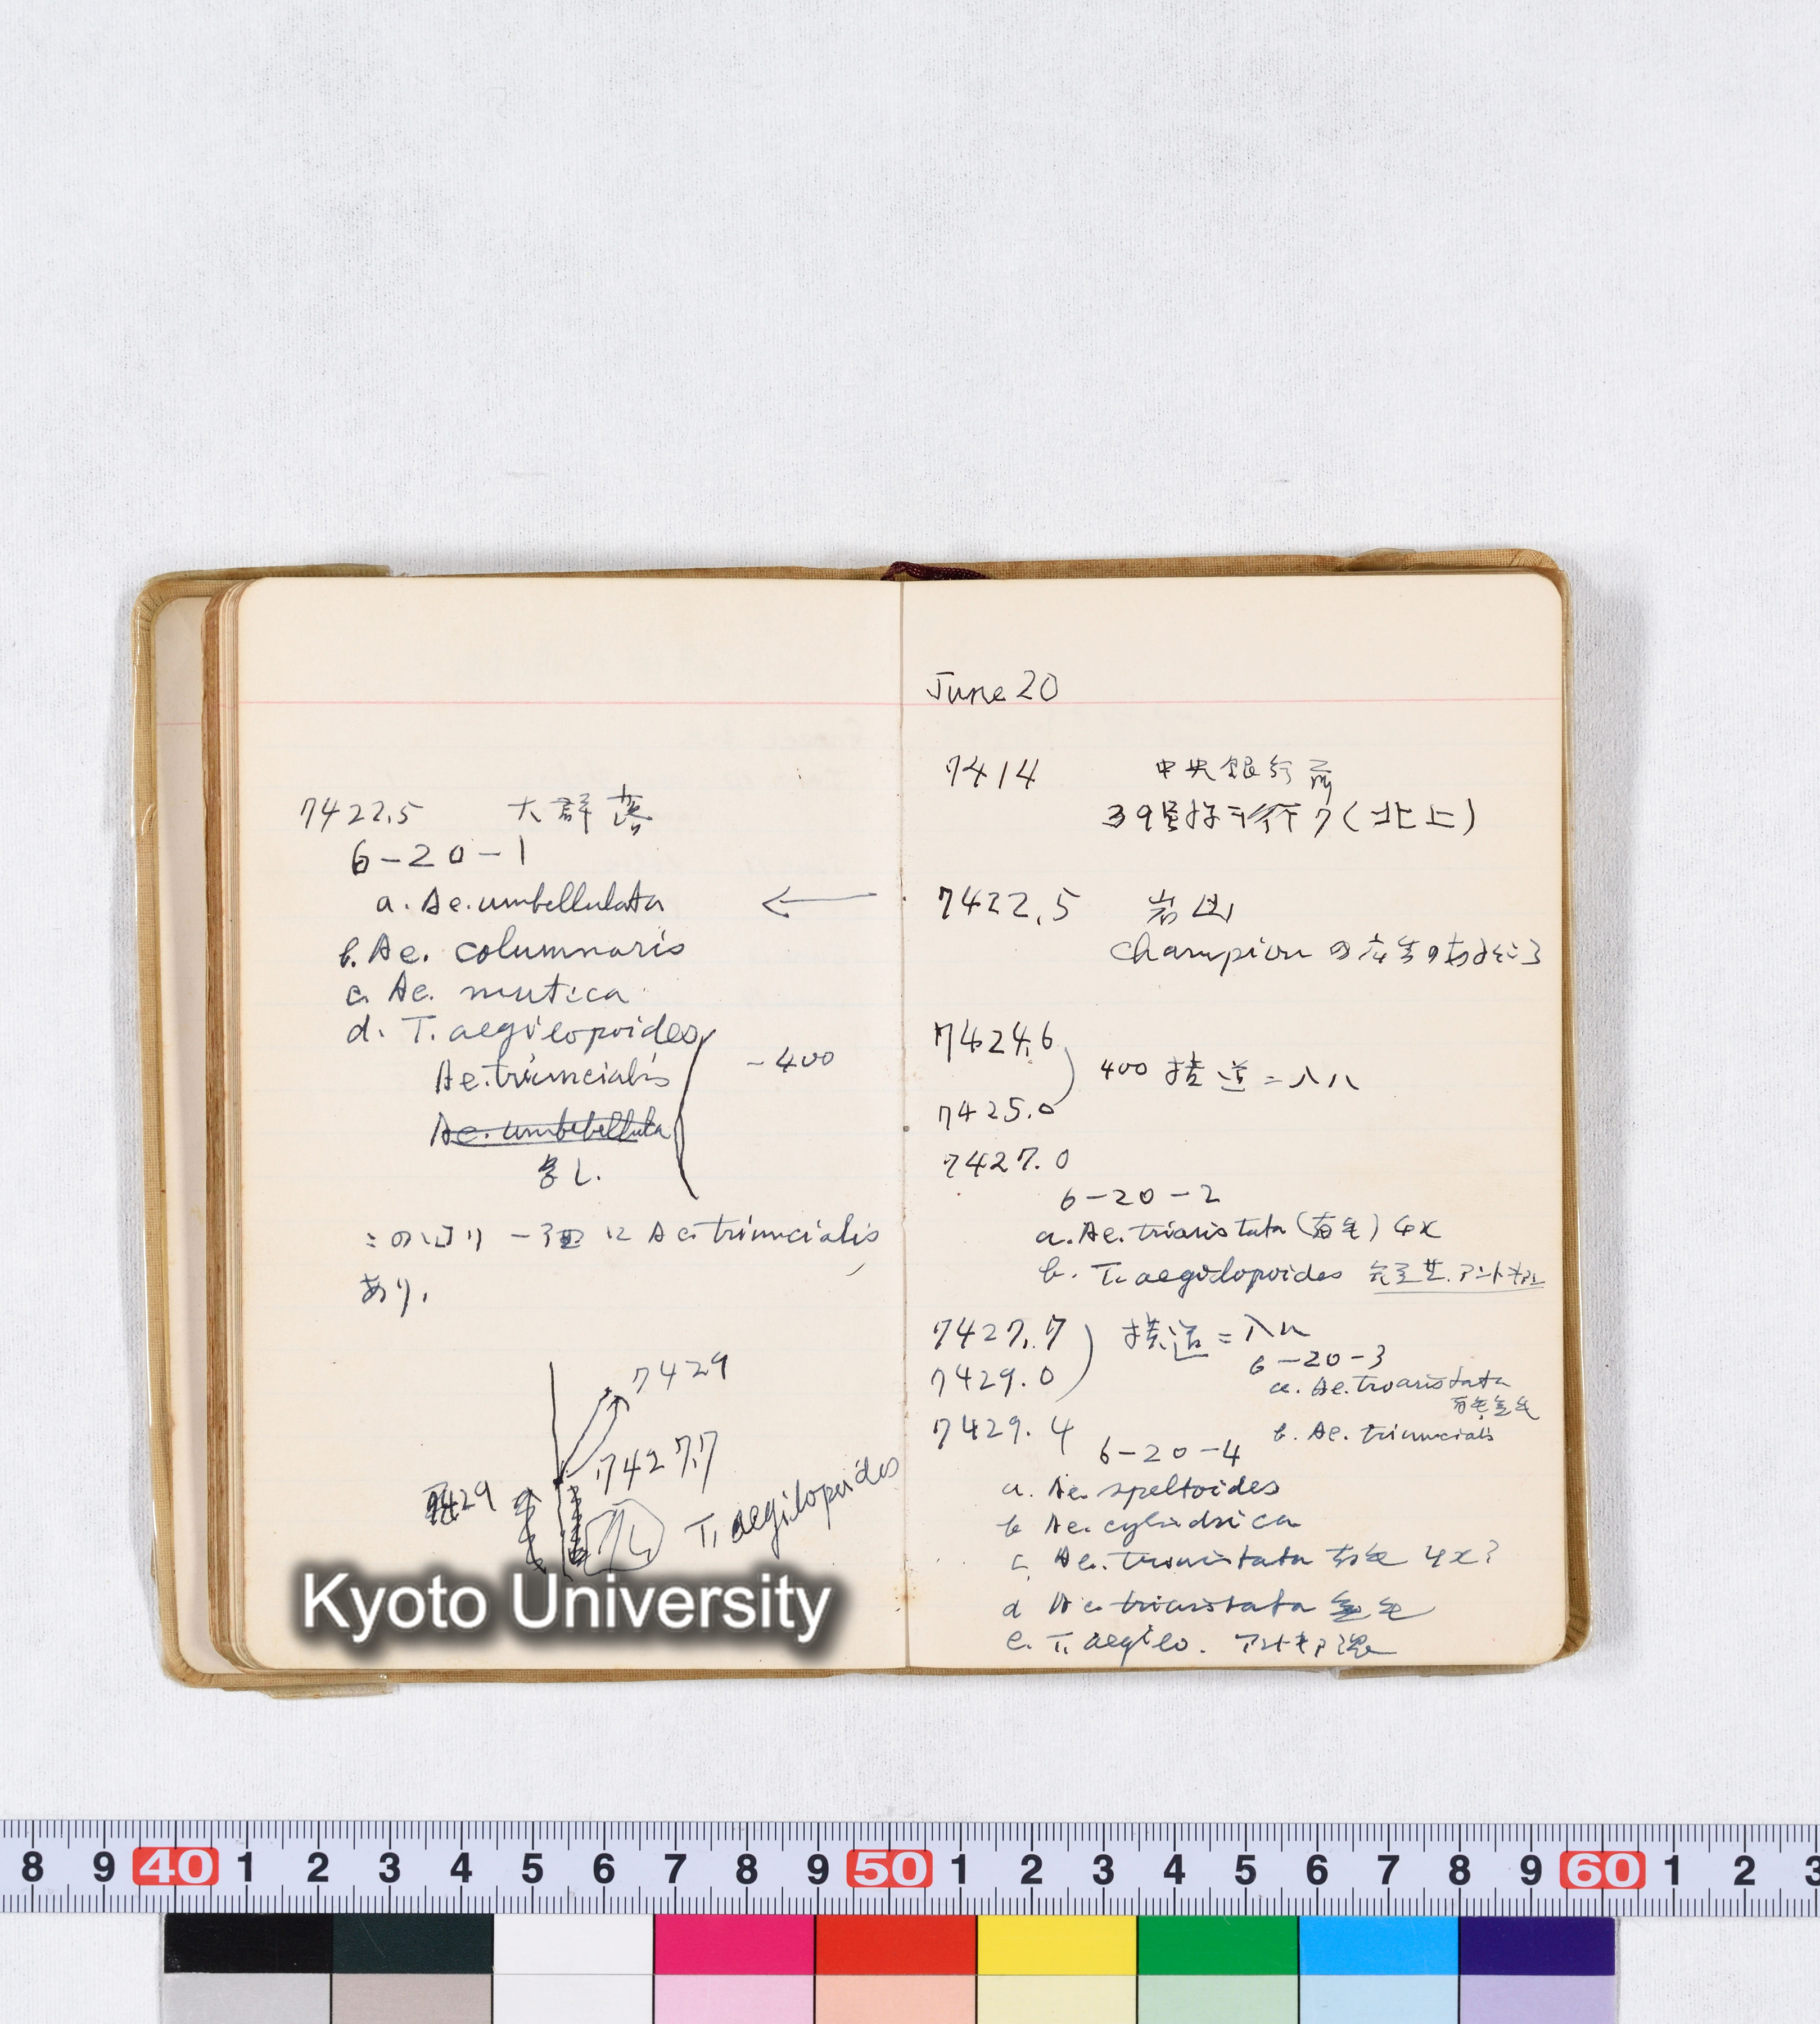 7422.5 大群落
6-20-1
a. Ae. umbellulata
b. Ae. columnaris
c. Ae. mutica
d. T. aegilopoides
Ae. triuncialis
Ae. umbebellulata
多し.
-400
この辺り一面に Ae. triuncialis
あり.
7429
7427.7
7429
T. aegilopoides
June 20
7414 中央銀行前
39号線
行ク(北上)
7422.5 岩山
Champion の
7424.6
400 横道ニ入ル
7425.0
7427.0
6-20-2
a. Ae. triaristata (有毛) 4x
b. T. aegilopoides
7427.7
横道ニ入ル
6-20-3
7429.0
a. Ae. triaristata
有毛, 無毛
7429.4
b. Ae. triuncialis
6-20-4
a. Ae. speltoides
b Ae. cylindrica
c. Ae. triaristata 有毛 4x?
d Ae. triaristata 無毛
e. T. aegilo.
Kyoto University
8 9 40 1 2 3 4 5 6 7 8 9 50 1 2 3 4 5 6 7 8 9 60 1 2 3